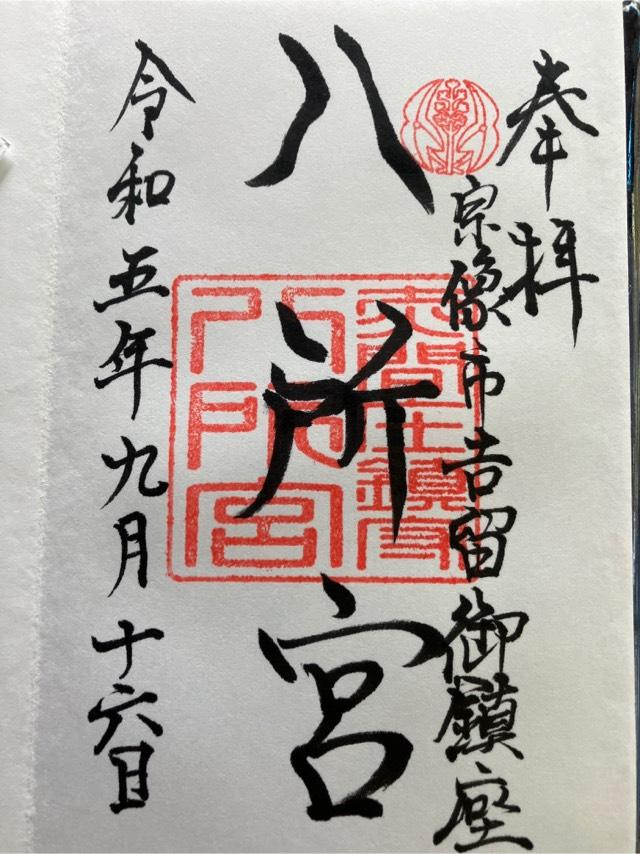 奉拝
宗像市吉留御鎮座
八所宮
令和五年九月十六日
八所宮